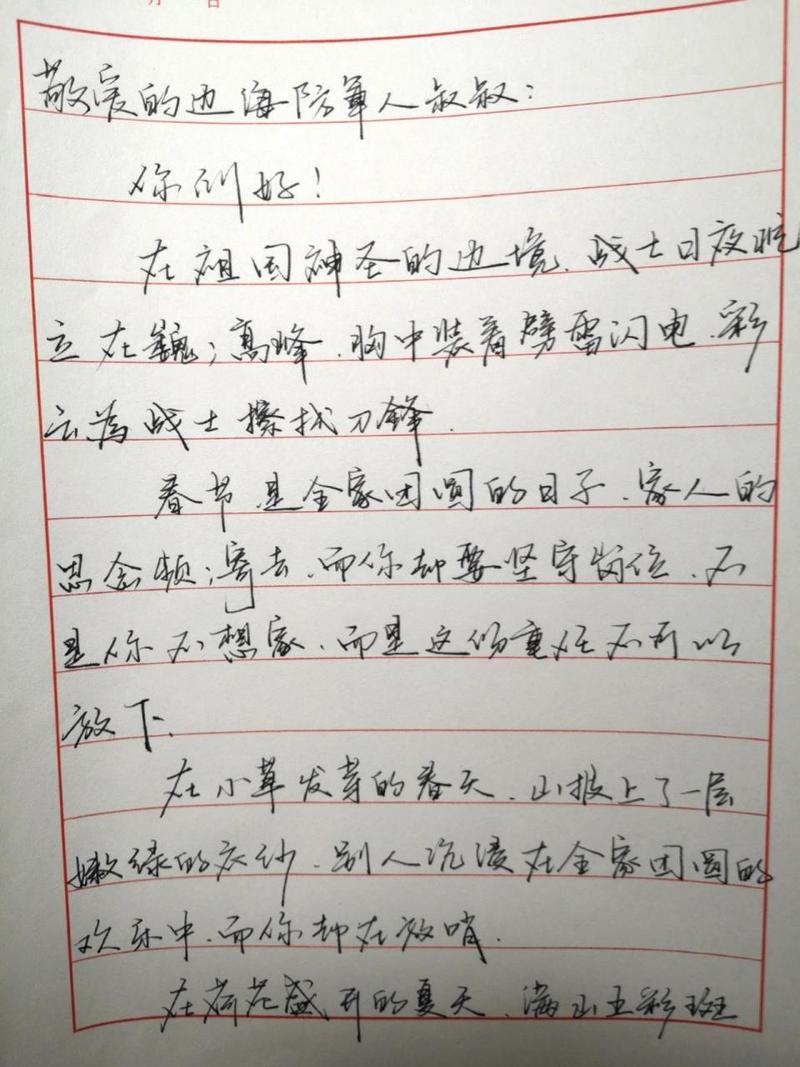 月 日
敬爱的边海防军人叔叔:
你们好!
在祖国神圣的边境、战士日夜屹
立在巍;高峰、胸中装着劈雷闪电、彩
云为战士擦拭刀锋.
春节是全家团圆的日子、家人的
思念频;寄去、而你却要坚守岗位、不
是你不想家、而是这份重任不可以
放下、
在小草发芽的春天、山披上了一层
嫩绿的衣纱、别人沉浸在全家团圆的
欢乐中、而你却在放哨.
在荷花盛开的夏天、满山五彩斑